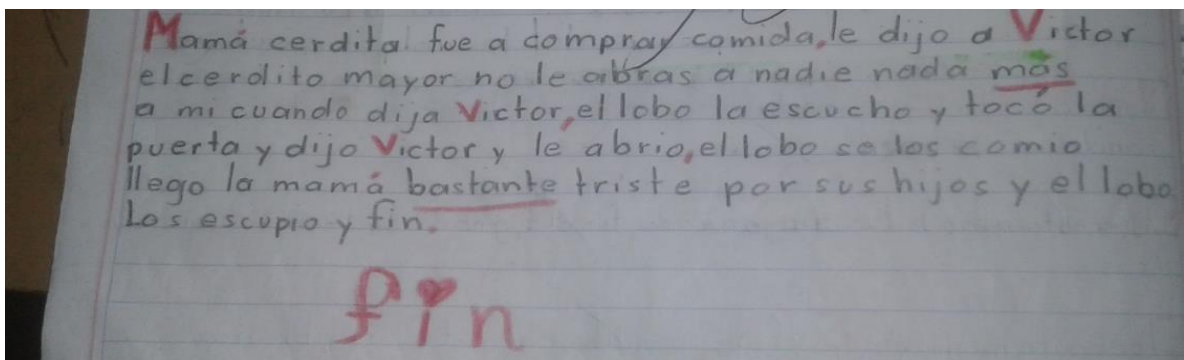 Mamá cerdita fue a comprar comida, le dijo a Victor
el cerdito mayor no le abras a nadie nada más
a mi cuando dija Victor, el lobo la escucho y tocó la
puerta y dijo Victor y le abrio, el lobo se los comio
llego la mamá bastante triste por sus hijos y el lobo
Los escupio y fin.
fin